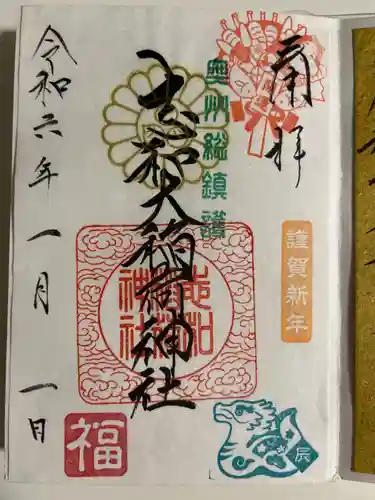 奉拝
奥州総鎮護
志和大稲荷神社
志和
稲荷
神社
令和六年一月一日
謹賀新年
福
辰